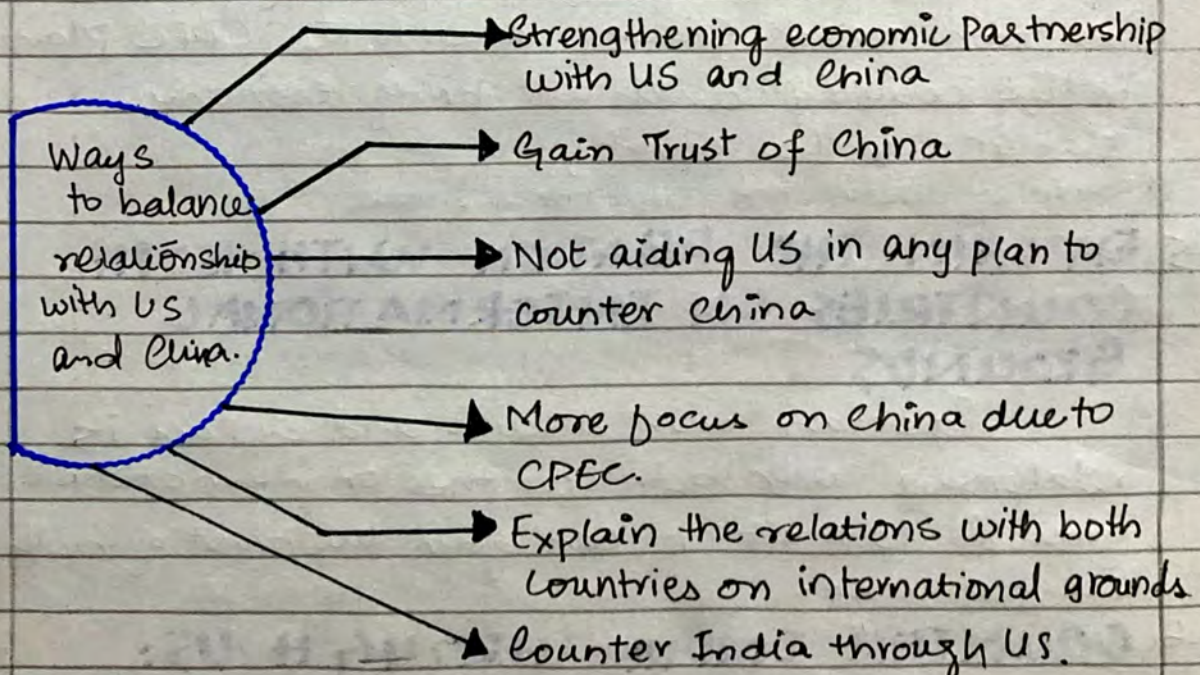 Ways
to balance
relationship
with US
and China.
Strengthening economic Partnership
with US and China
Gain Trust of China
Not aiding US in any plan to
counter China
More focus on China due to
CPEC.
Explain the relations with both
Countries on international grounds
Counter India through US.